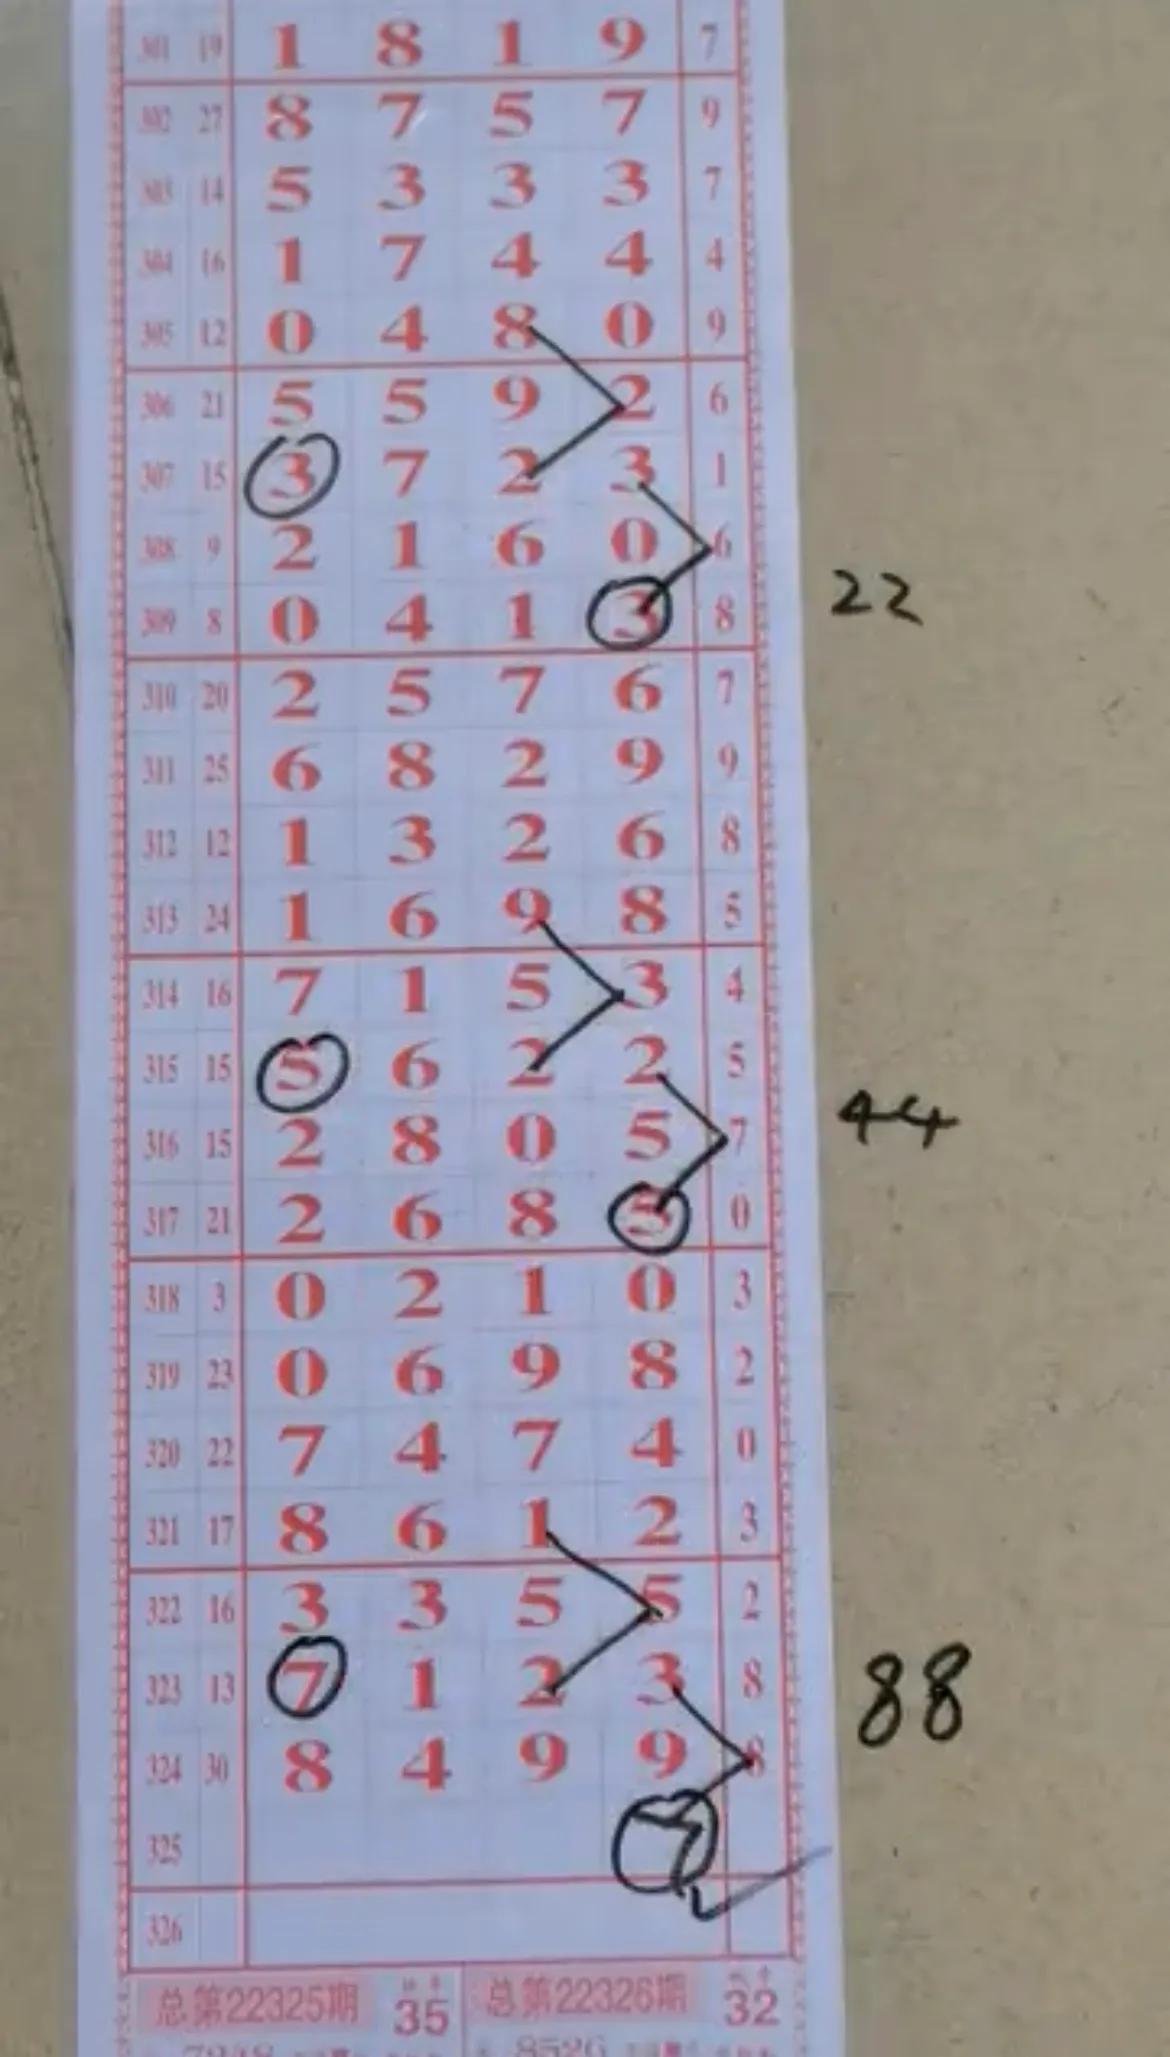 301 19 1 8 1 9 7
302 27 8 7 5 7 9
303 14 5 3 3 3 7
304 16 1 7 4 4 4
305 12 0 4 8 0 9
306 21 5 5 9 2 6
307 15 3 7 2 3 1
308 9 2 1 6 0 6
22
309 8 0 4 1 3 8
310 20 2 5 7 6 7
311 25 6 8 2 9 9
312 12 1 3 2 6 8
313 24 1 6 9 8 5
314 16 7 1 5 3 4
315 15 5 6 2 2 5
44
316 15 2 8 0 5 7
317 21 2 6 8 5 0
318 3 0 2 1 0 3
319 23 0 6 9 8 2
320 22 7 4 7 4 0
321 17 8 6 1 2 3
322 16 3 3 5 5 2
323 13 7 1 2 3 8
88
324 30 8 4 9 9 8
325 7
326
总第22325期 35 总第22326期 32
8526